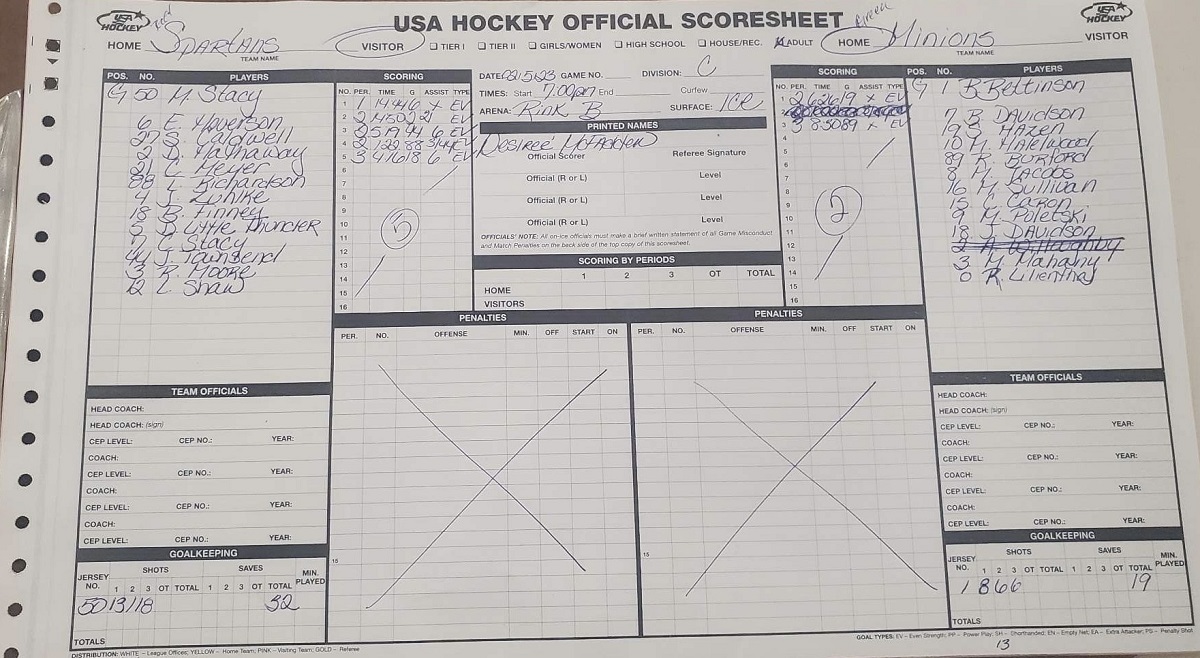 USA HOCKEY OFFICIAL SCORESHEET
USA HOCKEY
Red
HOME Spartans
TEAM NAME
VISITOR
TIER I TIER II GIRLS/WOMEN HIGH SCHOOL HOUSE/REC. ADULT
HOME Minions
TEAM NAME
VISITOR
USA HOCKEY
POS. NO. PLAYERS
G 50 M. Stacy
6 E. Halverson
S. Caldwell
2 D. Hathaway
21 L. Meyer
88 L. Richardson
4 J. Zuhlke
18 B. Finney
5 D. Little Thunder
7 C. Stacy
44 J. Townsend
3 R. Moore
12 L. Shaw
SCORING
NO. PER. TIME G ASSIST TYPE
1 1 1444 6 x EV
2 2 1450 2 21 EV
3 2 519 44 6 EV
4 2 122 88 EV
5 3 416 18 6 EV
6
7
8
9
10
11
12
13
14
15
16
5
DATE: 02/5/23 GAME NO. DIVISION: C
TIMES: Start 7:00pm End Curfew
ARENA: Rink B SURFACE: ICE
PRINTED NAMES
Desiree McFadden
Official Scorer Referee Signature
Official (R or L) Level
Official (R or L) Level
Official (R or L) Level
OFFICIALS' NOTE: All on-ice officials must make a brief written statement of all Game Misconduct
and Match Penalties on the back side of the top copy of this scoresheet.
SCORING BY PERIODS
1 2 3 OT TOTAL
HOME
VISITORS
SCORING
NO. PER. TIME G ASSIST TYPE
1 2 626 19 x EV
2
3 3 850 89 x EV
4
5
6
7
8
9
10
11
12
13
14
15
16
2
POS. NO. PLAYERS
G 1 B. Bettinson
7 B. Davidson
19 S. Hazen
10 M. Hazelwood
89 R. Burford
8 M. Jacobs
16 M. Sullivan
15 C. Caron
9 M. Poletski
18 J. Davidson
3 M. Mahany
0 R. Lilienthal
PENALTIES
PER. NO. OFFENSE MIN. OFF START ON
15
PENALTIES
PER. NO. OFFENSE MIN. OFF START ON
15
TEAM OFFICIALS
HEAD COACH:
HEAD COACH: (sign)
CEP LEVEL: CEP NO.: YEAR:
COACH:
CEP LEVEL: CEP NO.: YEAR:
COACH:
CEP LEVEL: CEP NO.: YEAR:
COACH:
CEP LEVEL: CEP NO.: YEAR:
GOALKEEPING
JERSEY NO. SHOTS SAVES MIN. PLAYED
1 2 3 OT TOTAL 1 2 3 OT TOTAL
50 13 11 8 32
TOTALS
TEAM OFFICIALS
HEAD COACH:
HEAD COACH: (sign)
CEP LEVEL: CEP NO.: YEAR:
COACH:
CEP LEVEL: CEP NO.: YEAR:
COACH:
CEP LEVEL: CEP NO.: YEAR:
COACH:
CEP LEVEL: CEP NO.: YEAR:
GOALKEEPING
JERSEY NO. SHOTS SAVES MIN. PLAYED
1 2 3 OT TOTAL 1 2 3 OT TOTAL
1 8 6 6 19
TOTALS
DISTRIBUTION: WHITE – League Offices; YELLOW – Home Team; PINK – Visiting Team; GOLD – Referee
GOAL TYPES: EV – Even Strength; PP – Power Play; SH – Shorthanded; EN – Empty Net; EA – Extra Attacker; PS – Penalty Shot
13